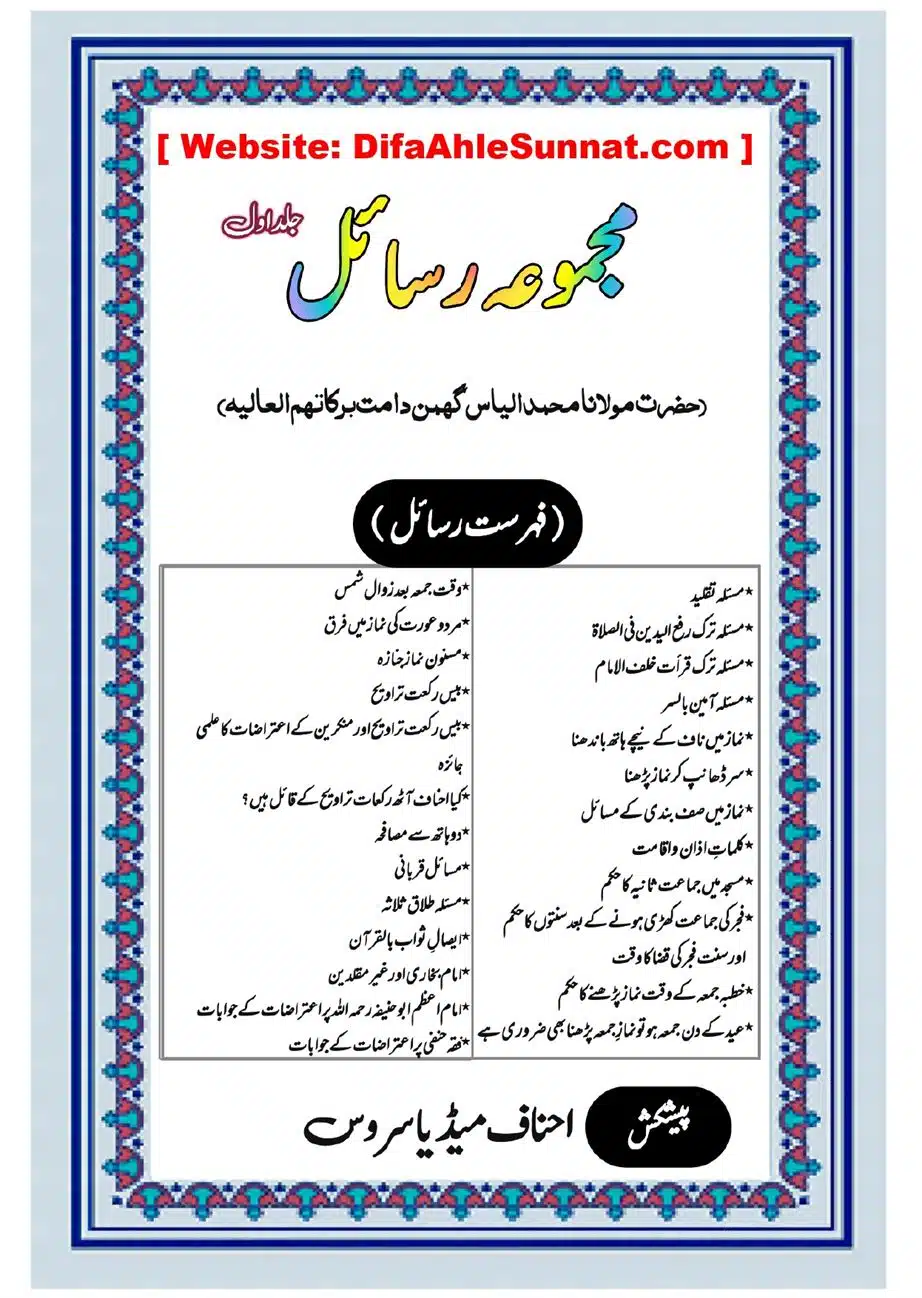 [ Website: DifaAhleSunnat.com ]
مجموعہ رسائل
جلد اول
(حضرت مولانا محمد الیاس گھمن دامت برکاتہم العالیہ)
(فہرست رسائل)
*مسئلہ تقلید
*مسئلہ ترک رفع الیدین فی الصلاۃ
*مسئلہ ترک قرأت خلف الامام
*مسئلہ آمین بالسر
*نماز میں ناف کے نیچے ہاتھ باندھنا
*سر ڈھانپ کر نماز پڑھنا
*نماز میں صف بندی کے مسائل
*کلماتِ اذان واقامت
*مسجد میں جماعت ثانیہ کا حکم
*فجر کی جماعت کھڑی ہونے کے بعد سنتوں کا حکم
اور سنت فجر کی قضا کا وقت
*خطبہ جمعہ کے وقت نماز پڑھنے کا حکم
*عید کے دن جمعہ ہو تو نمازِ جمعہ پڑھنا بھی ضروری ہے
*وقت جمعہ بعد زوال شمس
*مرد و عورت کی نماز میں فرق
*مسنون نماز جنازہ
*بیس رکعت تراویح
*بیس رکعت تراویح اور منکرین کے اعتراضات کا علمی
جائزہ
*کیا احناف آٹھ رکعات تراویح کے قائل ہیں؟
*دو ہاتھ سے مصافحہ
*مسائل قربانی
*مسئلہ طلاق ثلاثہ
*ایصالِ ثواب بالقرآن
*امام بخاری اور غیر مقلدین
*امام اعظم ابو حنیفہ رحمہ اللہ پر اعتراضات کے جوابات
*فقہ حنفی پر اعتراضات کے جوابات
پیشکش
احناف میڈیا سروس